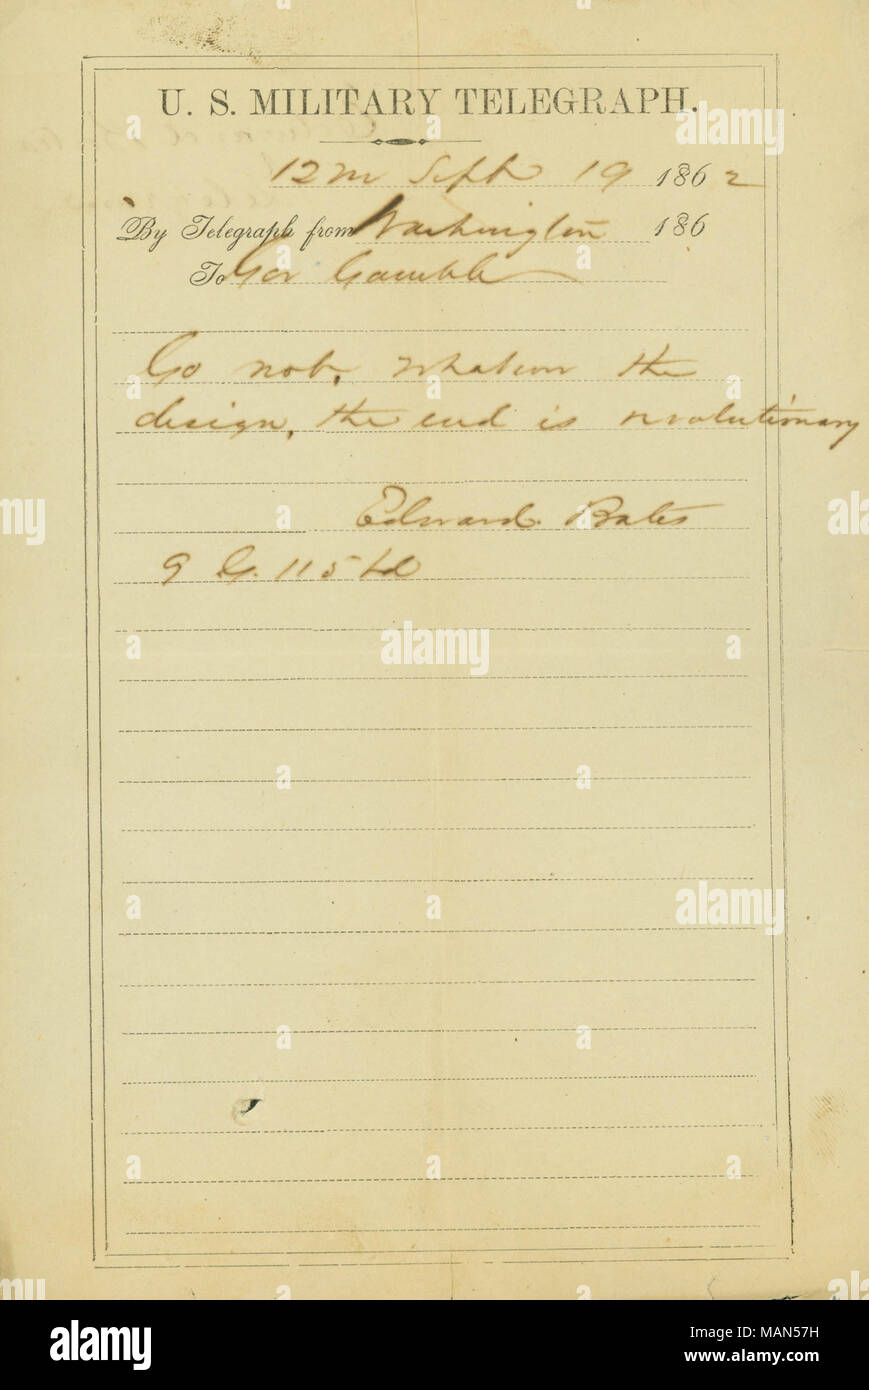 U. S. MILITARY TELEGRAPH.
12 M Sept 19 1862
By Telegraph from Washington 186
To Gov Gamble
Go not, whatever the
design, the end is revolutionary
Edward Bates
9 G. 115
alamy
alamy
Image ID: MAN57H
www.alamy.com